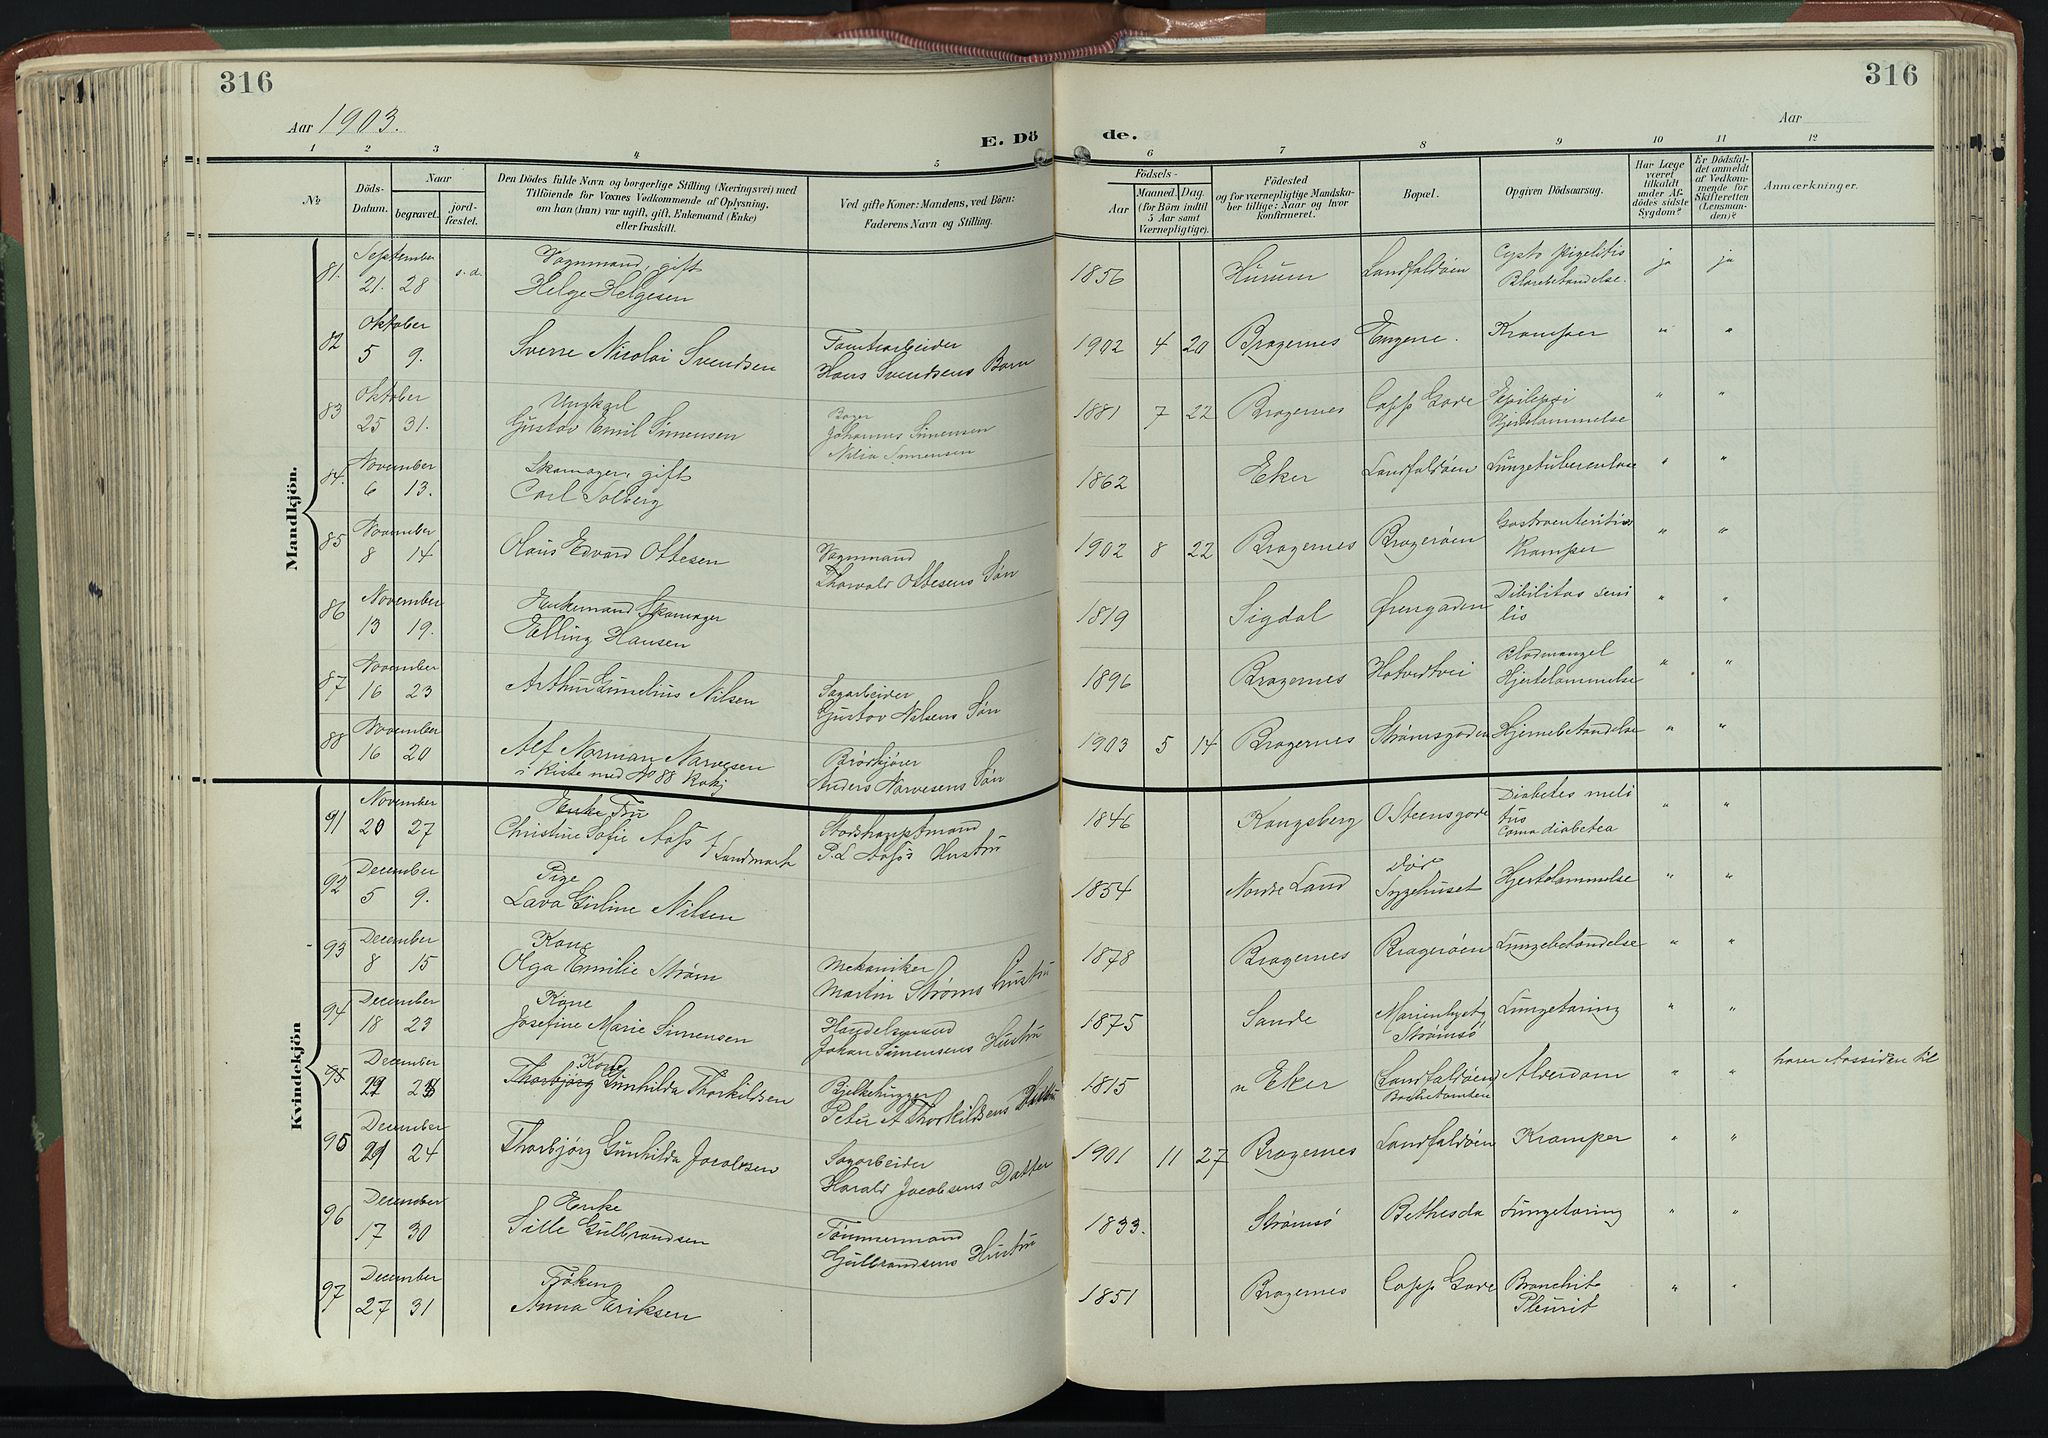 316
316
Aar 1903.
E. Dö de.
Aar
1 2 3 4 5 6 7 8 9 10 11 12
№
Döds-Datum.
Naar
begravet.
jord-fæstet.
Den Dödes fulde Navn og borgerlige Stilling (Næringsvei) med
Tilföiende for Voxnes Vedkommende af Oplysning,
om han (hun) var ugift, gift, Enkemand (Enke)
eller fraskilt.
Ved gifte Koner: Mandens, ved Börn:
Faderens Navn og Stilling.
Födsels-
Aar
Maaned. Dag.
(for Börn indtil
5 Aar samt
Værnepligtige).
Födested
og for værnepligtige Mandska-
ber tillige: Naar og hvor
konfirmeret.
Bopæl.
Opgiven Dödsaarsag.
Har Læge
været
tilkaldt
under Af-
dödes sidste
Sygdom?
Er Dödsfal-
det anmeldt
af Vedkom-
mende for
Skifteretten
(Lensman-
den)?
Anmærkninger.
Mandkjön.
81. September 21. 28 s.d. Vognmand, gift Helge Helgesen 1856 Hurum Landfaldøen Cysto Pigelitis Blærebetændelse. ja ja
82 Oktober 5 9. Sverre Nicolai Svendsen Tomtearbeider Hans Svendsens Barn 1902 4 20 Bragernes Engene. Kramper " "
83 Oktober 25 31. Ungkarl Gustav Emil Simensen Johannes Simensen 1881 7 22 Bragernes Capp Gade Epilepsi Hjertelammelse " "
84. November 6 13. Skomager, gift Carl Solberg 1862 Eker Landfaldøen Lungetuberculose " "
85 November 8 14 Olaus Edvard Ottesen Vognmand Thorvald Ottesens Søn 1902 8 22 Bragernes Bragerøen Gastroenteritis Kramper " "
86 November 13 19. Enkemand Skomager Elling Hansen 1819 Sigdal Ørengaden Dibilitas seni lis " "
87 November 16 23 Arthur Cunelius Nilsen Sagarbeider Gustav Nilsens Søn 1896 Bragernes Hotvedtvei Blodmangel Hjertelammelse " "
88 November 16 20 Alf Norman Narvesen i Kiste med No 88 Brødkjører Anders Narvesens Søn 1903 5 14 Bragernes Strømsgaden Hjernebetændelse " "
Kvindekjön
91 November 20 27 Enke Fru Christine Sofie Aass f Landmark Stadshauptmand P. L Aass's Hustru 1846 Kongsberg O Steensgade Diabetes meli tus Coma diabetea " "
92 December 5 9. Pige Lava Girline Nilsen 1854 Nordre Land Sygehuset Hjertelammelse " "
93 December 8 15 Kone Olga Emilie Strøm Mekaniker Martin Strøms Hustru 1878 Bragernes Bragerøen Lungebetændelse " "
94 December 18 23 Kone Josefine Marie Simensen Handelsmand Johan Simensens Hustru 1875 Sande Marienlyst Strømsø Lungetæring " "
95 December Kone Thorbjørg Gunhilda Thorkildsen Bjelkehugger Peter A Thorkildsens Hustru 1815 n Eker Landfaldøen Alderdom " " hører Aassiden til
95 December 21 24 Thorbjørg Gunhilda Jacobsen Sagarbeider Harald Jacobsens Datter 1901 11 27 Bragernes Landfaldøen Kramper " "
96 December 17 30 Enke Sille Gulbrandsen Tømmermand Gulbrandsens Hustru 1833. Strømsø Bethesda Lungetæring " "
97 December 27 31 Frøken Anna Eriksen 1851 Bragernes Capp Gade Bronchit Pleurit " "